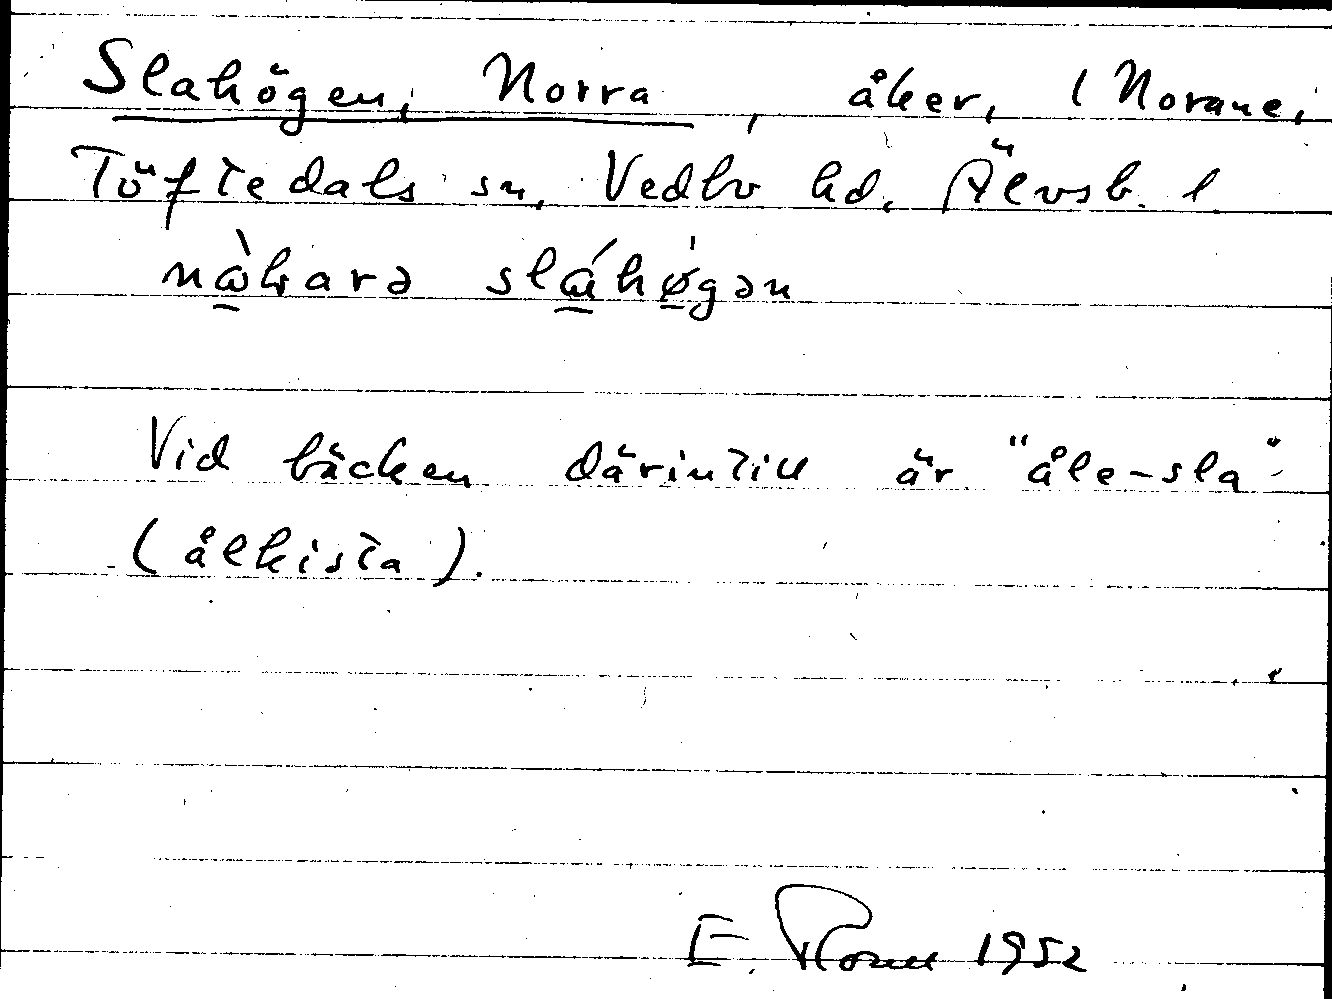 Slahögen, Norra, åker, l Norane,
Töftedals sn, Vedbo hd, Älvsb. l
slahøgən
Vid bäcken därintill är "åle-sla"
(ålkista).
E. 1952